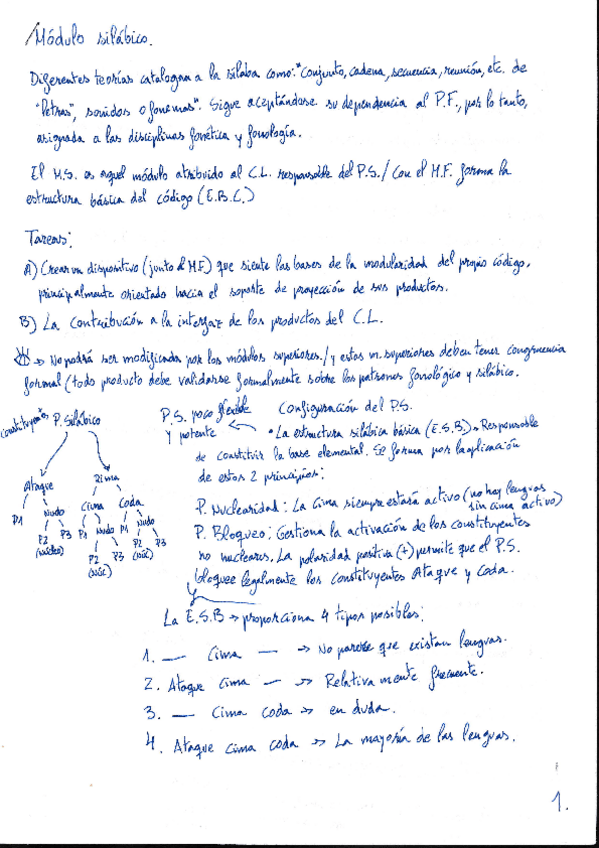 Módulo silábico.
Diferentes teorías catalogan a la sílaba como: "conjunto, cadena, secuencia, reunión, etc. de
"letras", sonidos o fonemas". Sigue aceptándose su dependencia al P.F., por lo tanto,
asignada a las disciplinas fonética y fonología.
El M.S. es aquel módulo atribuido al C.L. responsable del P.S./ Con el M.F. forma la
estructura básica del código (E.B.C.)
Tareas:
A) Crear un dispositivo (junto al M.F.) que siente las bases de la modularidad del propio código,
principalmente orientado hacia el soporte de proyección de sus productos.
B) La contribución a la interfaz de los productos del C.L.
→ No podrá ser modificada por los módulos superiores./ y estos m. superiores deben tener congruencia
formal (todo producto debe validarse formalmente sobre los patrones fonológico y silábico.
constituyentes P. Silábico
P.S. poco flexible
y potente
Configuración del P.S.
• La estructura silábica básica (E.S.B.) → Responsable
de constituir la base elemental. Se forma por la aplicación
de estos 2 principios:
Ataque Rima
Nudo Cima Coda
P1 P2 P3 P1 Nudo P1 Nudo
(núcleo) P2 P3 P2 P3
(núc) (núc)
P. Nuclearidad: La cima siempre estará activo (no hay lenguas
sin cima activo)
P. Bloqueo: Gestiona la activación de los constituyentes
no nucleares. La polaridad positiva (+) permite que el P.S.
bloquee legalmente los constituyentes Ataque y Coda.
La E.S.B → proporciona 4 tipos posibles:
1. — Cima — → No parece que existan lenguas.
2. Ataque cima — → Relativamente frecuente.
3. — Cima coda → en duda.
4. Ataque cima coda → La mayoría de las lenguas.
1.